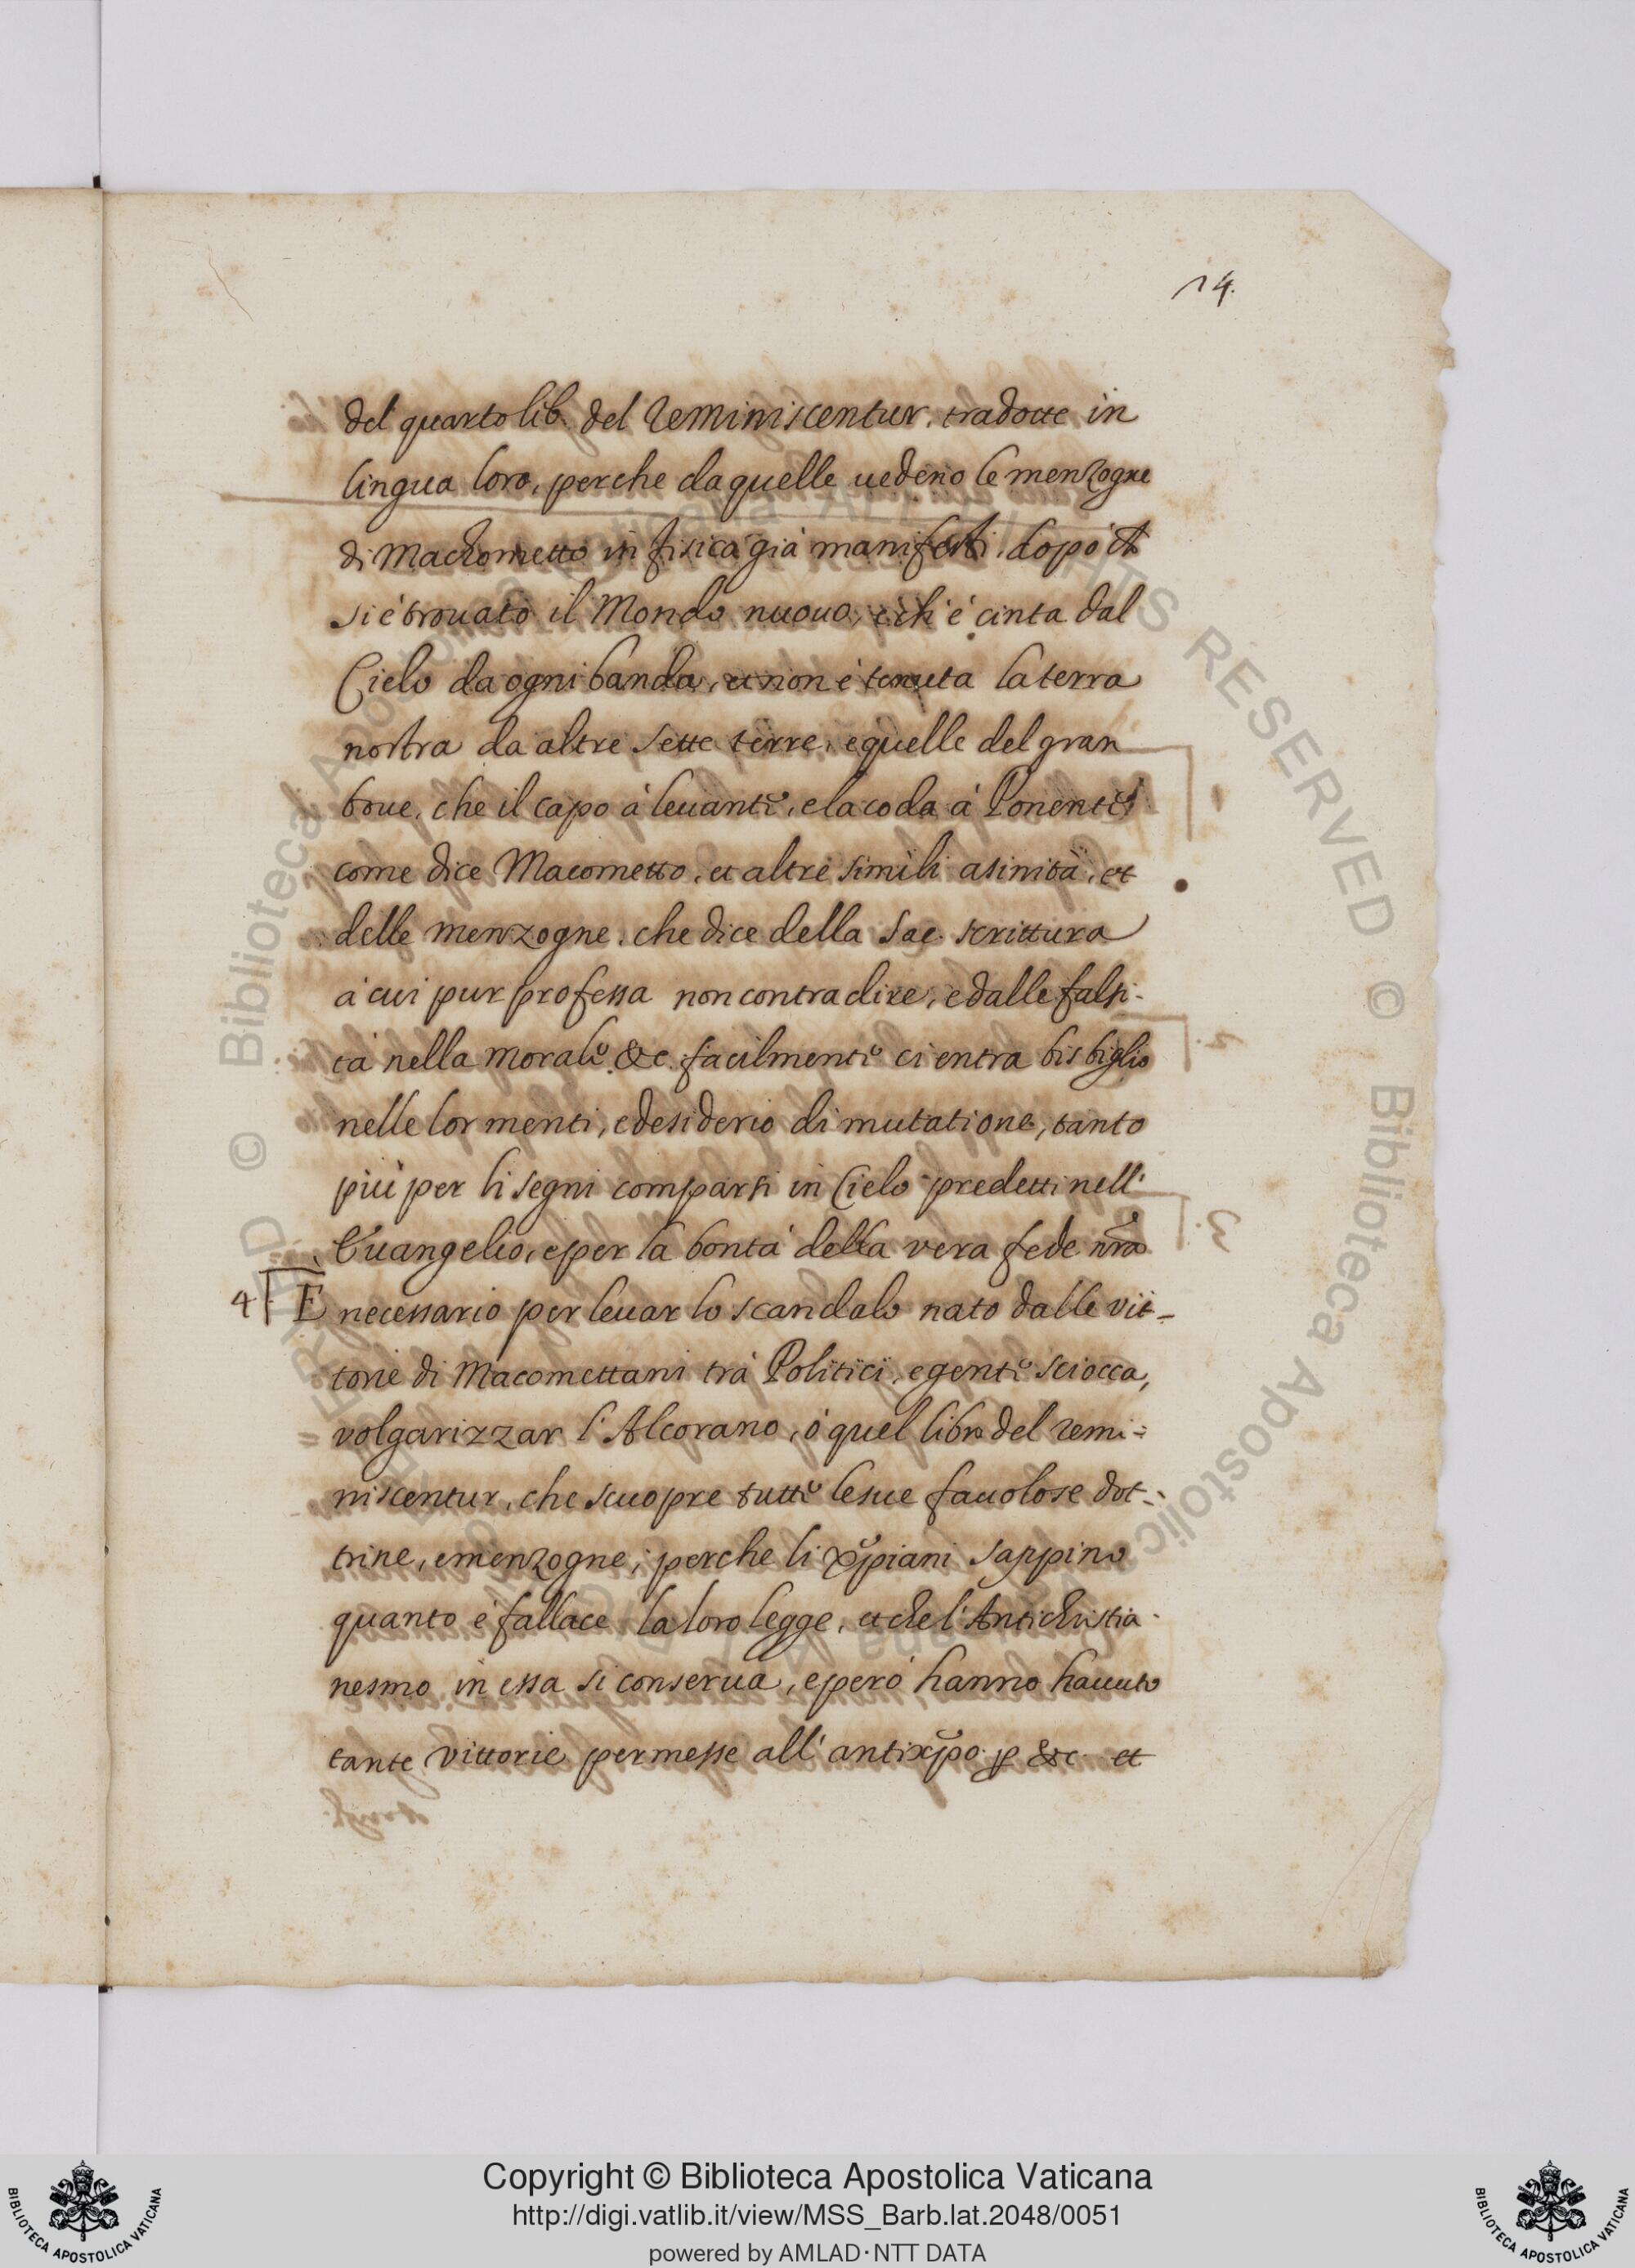 14.
del quarto lib. del Reminiscentur. tradotte in
lingua loro, perche da quelle uedeno le menzogne
di Machometto in fisica già manifesti, dopo ch
si è trouato il Mondo nuouo, e ch'è cinta dal
Cielo da ogni banda, et non è tenuta la terra
nostra da altre sette terre, e quelle del gran
boue, che il capo à leuante, e la coda à Ponente
come dice Macometto, et altre simili asinità, et
delle menzogne, che dice della Sac. scrittura
à cui pur professa non contradire, e dalle falsi-
tà nella morale &c. facilmente ci entra bisbiglio
nelle lor menti, e desiderio di mutatione, tanto
più per li segni comparsi in Cielo predetti nell'
Euangelio, e per la bontà della vera fede nra
4 È necessario per leuar lo scandalo nato dalle vit-
torie di Macomettani trà Politici, e gente sciocca,
volgarizzar l'Alcorano, ò quel libro del remi-
niscentur, che scuopre tutte le sue fauolose dot-
trine, e menzogne; perche li xp̃iani sappino
quanto è fallace la loro legge, et che l'Antichristia-
nesmo in essa si conserua, e però hanno hauuto
tante vittorie permesse all'antixp̃o. ꝑ &c. et
© Biblioteca Apostolica Vaticana ALL RIGHTS RESERVED © Biblioteca Apostolica Vaticana ALL RIGHTS RESERVED
Copyright © Biblioteca Apostolica Vaticana
http://digi.vatlib.it/view/MSS_Barb.lat.2048/0051
powered by AMLAD·NTT DATA
BIBLIOTECA APOSTOLICA VATICANA
BIBLIOTECA APOSTOLICA VATICANA